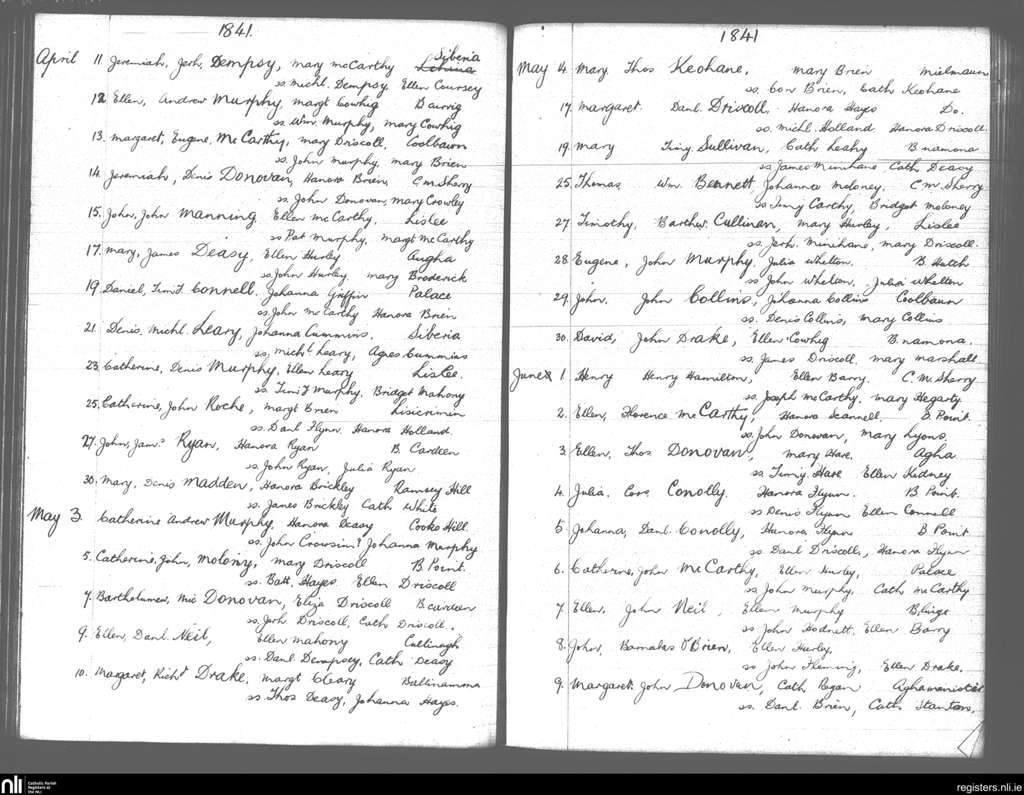 1841.
April 11 Jeremiah, Jerh. Dempsy, Mary McCarthy Siberia
ss. Michl. Dempsy Ellen Coursey
12 Ellen, Andrew Murphy, Margt Cowhig
ss. Wm. Murphy, Mary Cowhig
13. Margaret, Eugene McCarthy, Mary Driscoll, Coolbawn
ss. John Murphy, Mary Brien
14. Jeremiah, Denis Donovan, Hanora Brien, C.M. Sherry
ss. John Donovan, Mary Crowley
15. John, John Manning, Ellen McCarthy, Lislee
ss Pat Murphy, Margt McCarthy
17. Mary, James Deasy, Ellen Hurley Augha
ss John Hurley Mary Broderick
19. Daniel, Timy. Connell, Johanna Griffin Palace
ss. John McCarthy Hanora Brien
21. Denis, Michl. Leary, Johanna Cummins. Siberia
ss. Michl. Leary, Agnes Cummins
23. Catherine, Denis Murphy, Ellen Leary Lislee.
ss. Timy Murphy, Bridget Mahony
25. Catherine, John Roche, Margt Brien Lisicrimin
ss. Danl Flynn. Hanora Holland.
27. John, Jams. Ryan, Hanora Ryan B. Cardeen
ss John Ryan, Julia Ryan
30. Mary, Denis Madden, Hanora Brickley Ramsey Hill
ss. James Brickley Cath White
May 3. Catherine Andrew Murphy, Hanora Deasy Cooks Hill.
ss. John Crowsin? Johanna Murphy
5. Catherine, John, Molony, Mary Driscoll B Point.
ss. Batt. Hayes Ellen Driscoll
7. Bartholumew, Mic Donovan, Eliza Driscoll B cardeen
ss, Jerh Driscoll, Cath Driscoll.
9. Ellen, Danl. Neil, Ellen Mahony Cullinagh
ss. Danl Dempsey, Cath Deasy
10. Margaret, Richd Drake, Margt Cleary Ballinamona
ss. Thos Deasy, Johanna Hayes.
1841
May 14. Mary, Thos Keohane, Mary Brien Mielmaun
ss. Con Brien, Cath Keohane
17. Margaret Danl. Driscoll. Hanora Hayes Do.
ss. Michl. Holland Hanora Driscoll.
19. Mary Timy. Sullivan, Cath Leahy B namona
ss James Minihane, Cath Deasy
25. Thomas Wm. Bennett, Johanna Moloney, C.M. Sherry
ss Timy Carthy, Bridget Moloney
27. Timothy, Barthw. Cullinan, Mary Hurley, Lislee
ss. Jerh. Minihane, Mary Driscoll.
28. Eugene, John Murphy, Julia Whelton. B. Hutch
ss John Whelton, Julia Whelton
29. John, John Collins, Johanna Collins Coolbaun
ss. Denis Collins, Mary Collins
30. David, John Drake, Ellen Cowhig B. namona.
ss. James Driscoll, Mary Marshall.
June 1 Henry Henry Hamilton, Ellen Barry. C.M. Sherry
ss. Joseph McCarthy, Mary Hegarty
2. Ellen, Florence McCarthy, Hanora Scannell. B. Point.
ss. John Donovan, Mary Lyons.
3. Ellen, Thos Donovan, Mary Hare, Agha
ss. Timy Hare Ellen Kidney
4. Julia, Cors Conolly. Hanora Flynn. B. Point.
ss Denis Flynn Ellen Connell
5. Johanna, Danl. Conolly, Hanora Flynn B Point
ss Danl Driscoll, Hanora Flynn
6. Catherine, John McCarthy, Ellen Hurley, Palace
ss John Murphy, Cath McCarthy
7. Ellen, John Neil, Ellen Murphy
ss John Hodnett, Ellen Barry
8. John, Barnabas O'Brien, Ellen Hurley,
ss John Fleming, Ellen Drake.
9. Margaret, John Donovan, Cath Regan
ss. Danl. Brien, Cath Stanton.
nli Catholic Parish Registers at the NLI
registers.nli.ie